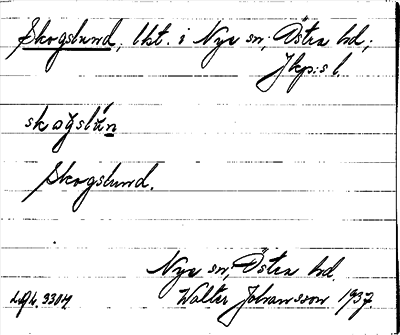 Skogslund, lht. i Nye sn; Östra hd;
Jkp:s l.
skogslun
Skogslund.
Nye sn; Östra hd.
Walter Johansson 1937.